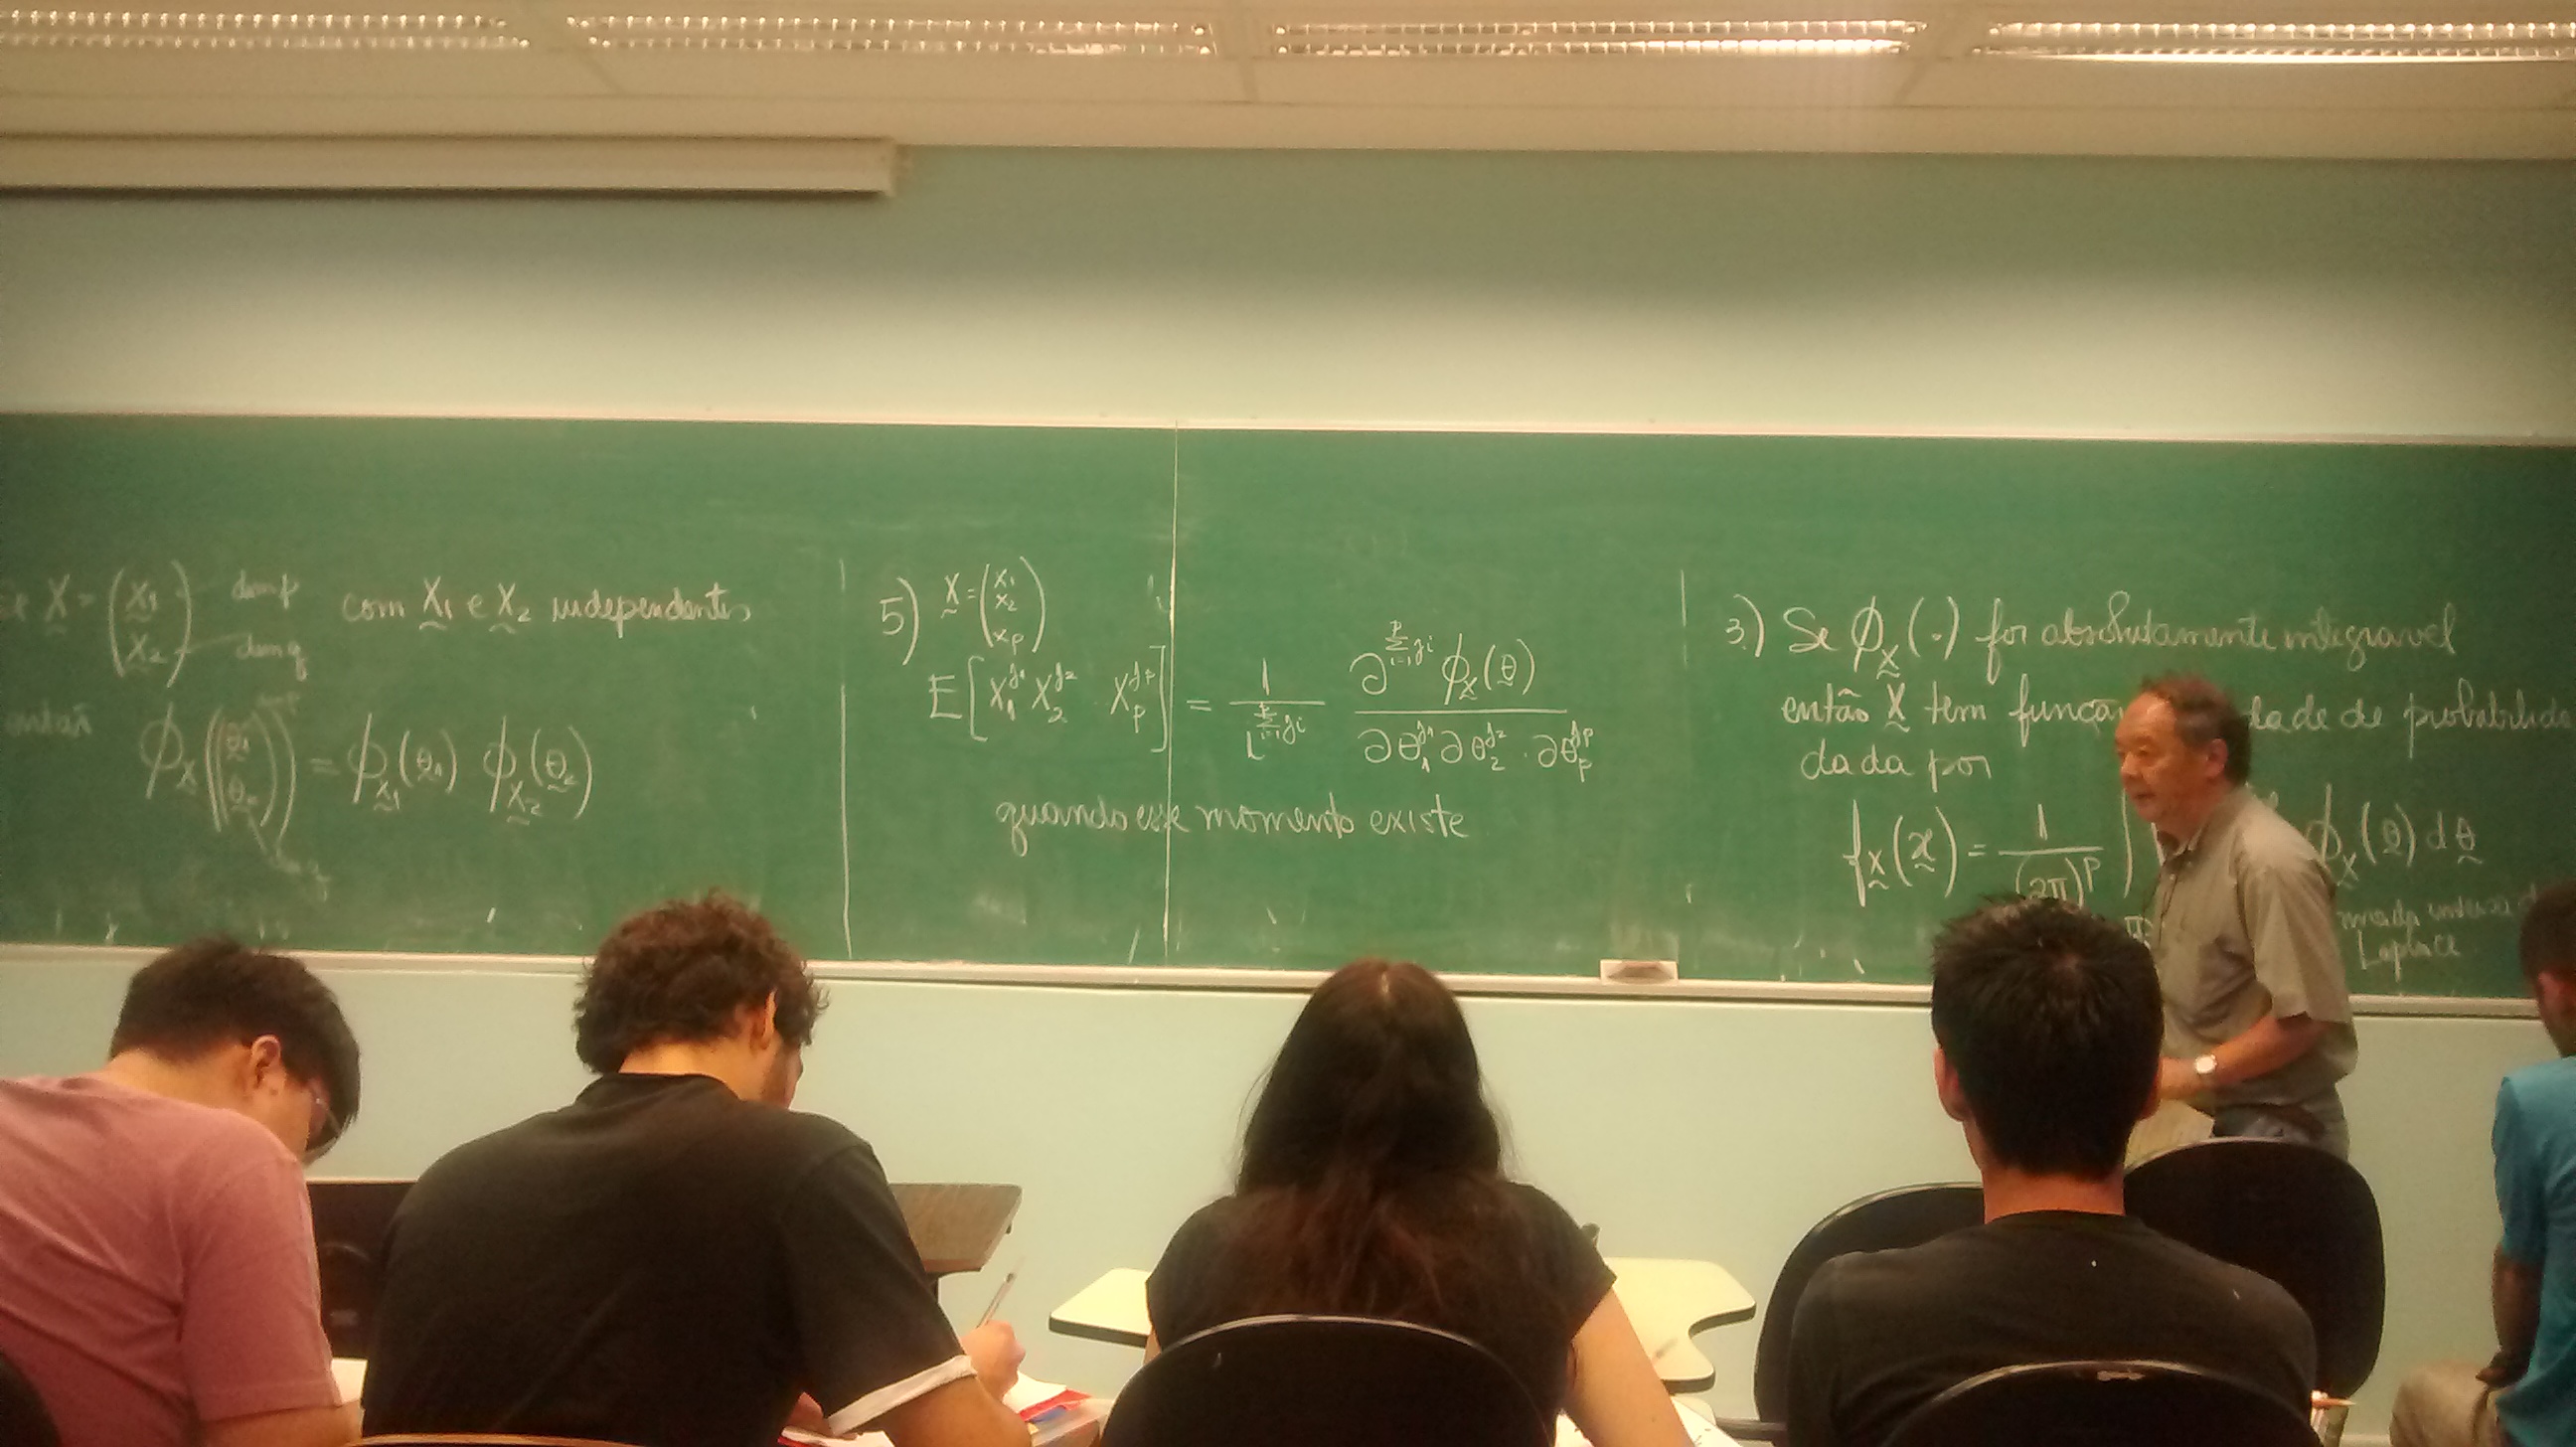 X = (X₁ X₂) dim p dim q com X₁ e X₂ independentes
então
ϕ_X((θ₁ θ₂)) = ϕ_X₁(θ₁) ϕ_X₂(θ₂)
5) X = (X₁ X₂ X_p)
E[X₁^j₁ X₂^j₂ . X_p^j_p] = 1 / i^(Σ_{i=1}^p j_i) ∂^(Σ_{i=1}^p j_i) ϕ_X(θ) / ∂θ₁^j₁ ∂θ₂^j₂ . ∂θ_p^j_p
quando esse momento existe
3) Se ϕ_X(·) for absolutamente integravel
então X tem de probabilida
dada por
f_X(x) = 1 / (2π)^p ∫ ϕ_X(θ) dθ
Laplace